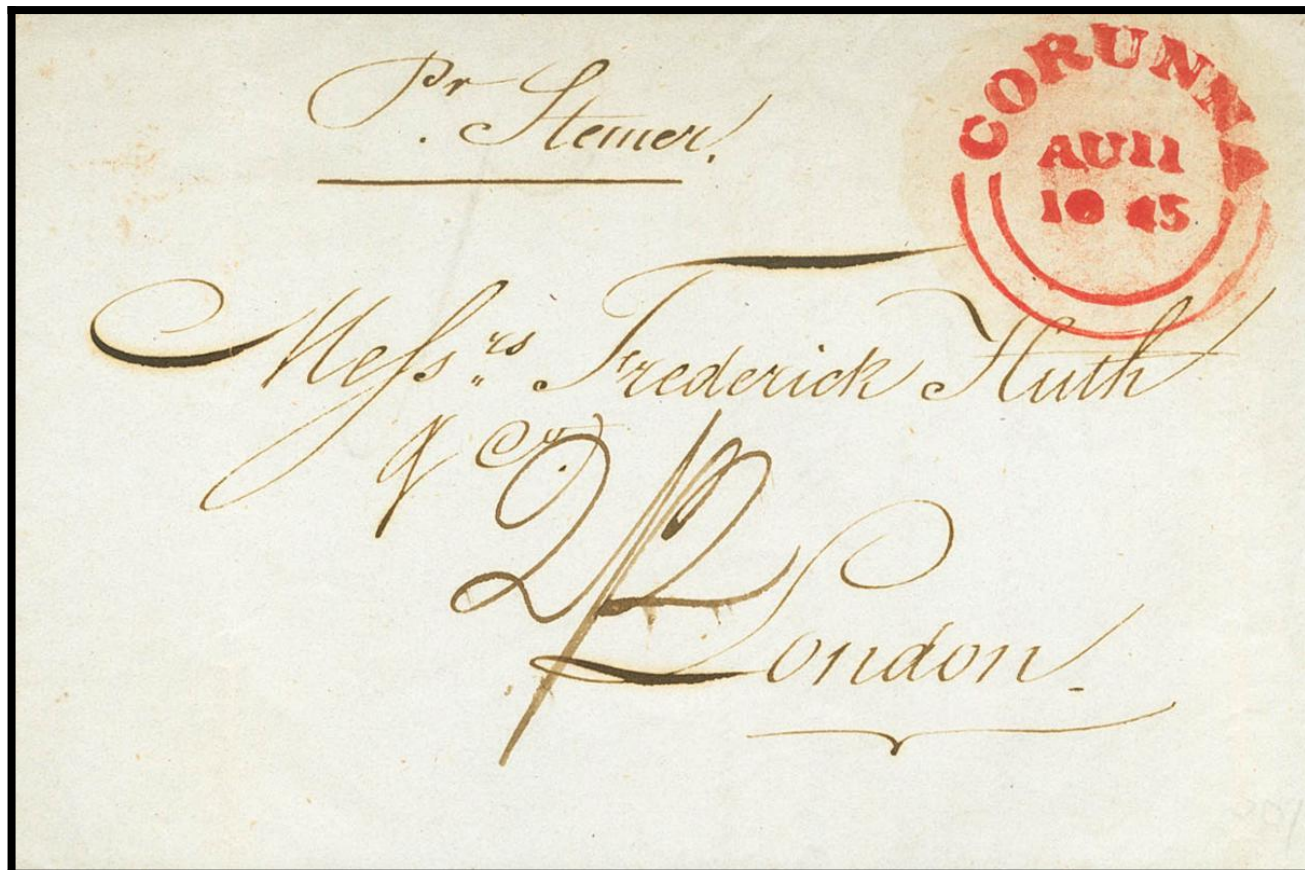 Pr Stemer.
CORUNNA
AU 11
1845
Messrs Frederick Huth
& Co.
2/2
London.